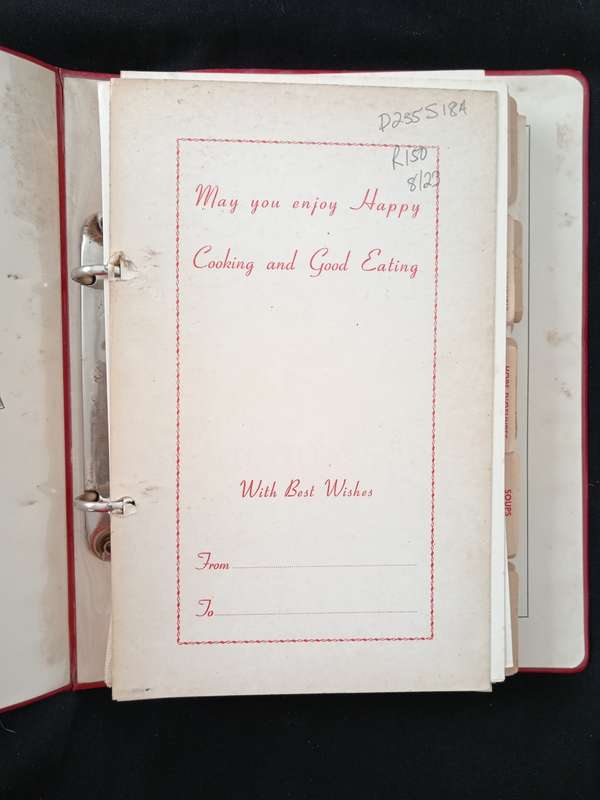 D255S18A
R150
8/23
May you enjoy Happy
Cooking and Good Eating
With Best Wishes
From
To
SOUPS